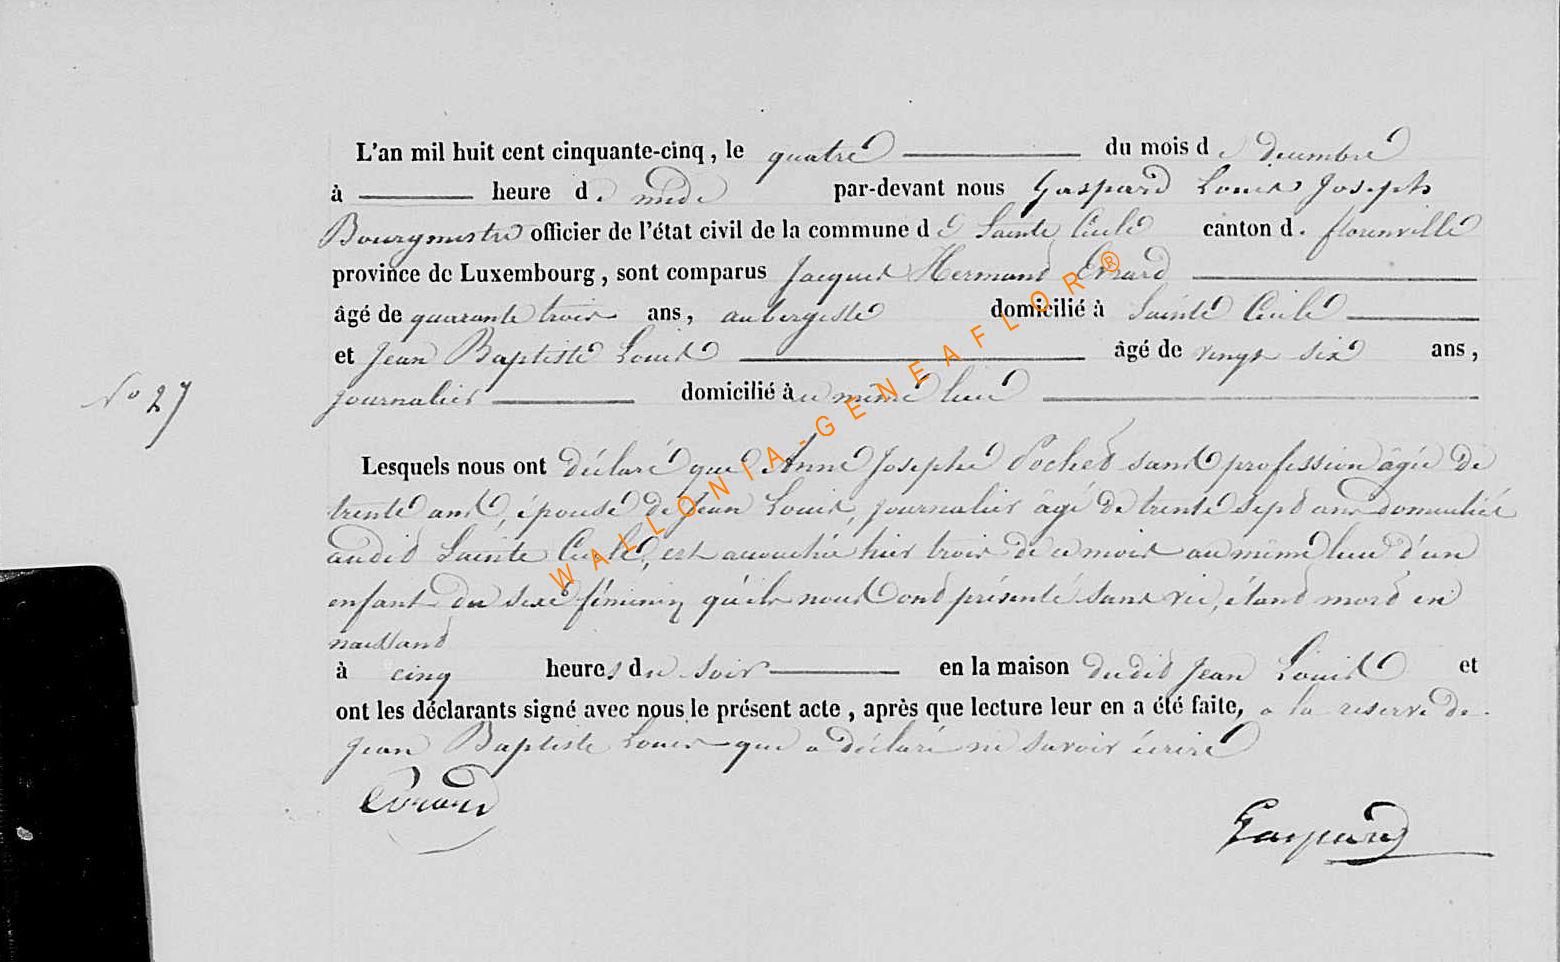 L'an mil huit cent cinquante-cinq, le quatre du mois de décembre
à heure de midi par-devant nous Gaspard Louis Joseph
Bourgmestre officier de l'état civil de la commune de Sainte Cécile canton d. florenville
province de Luxembourg, sont comparus Jacques Hermand Evrard
âgé de quarante trois ans, aubergiste domicilié à Sainte Cécile
et Jean Baptiste Louis âgé de vingt six ans,
No 27
journalier domicilié à même lieu
Lesquels nous ont déclaré que Anne Josephe Pochet sans profession âgée de
trente ans, épouse de Jean Louis, journalier âgé de trente sept ans domiciliés
audit Sainte Cécile, est accouchée hier trois de ce mois au même lieu d'un
enfant du sexe féminin qu'ils nous ont présenté sans vie, étant mort en
naissant
à cinq heures du soir en la maison dudit Jean Louis et
ont les déclarants signé avec nous le présent acte, après que lecture leur en a été faite, a la reserve de
Jean Baptiste Louis que a déclaré ne savoir écrire
Evrard
Gaspard
WALLONIA-GENEAFLOR®